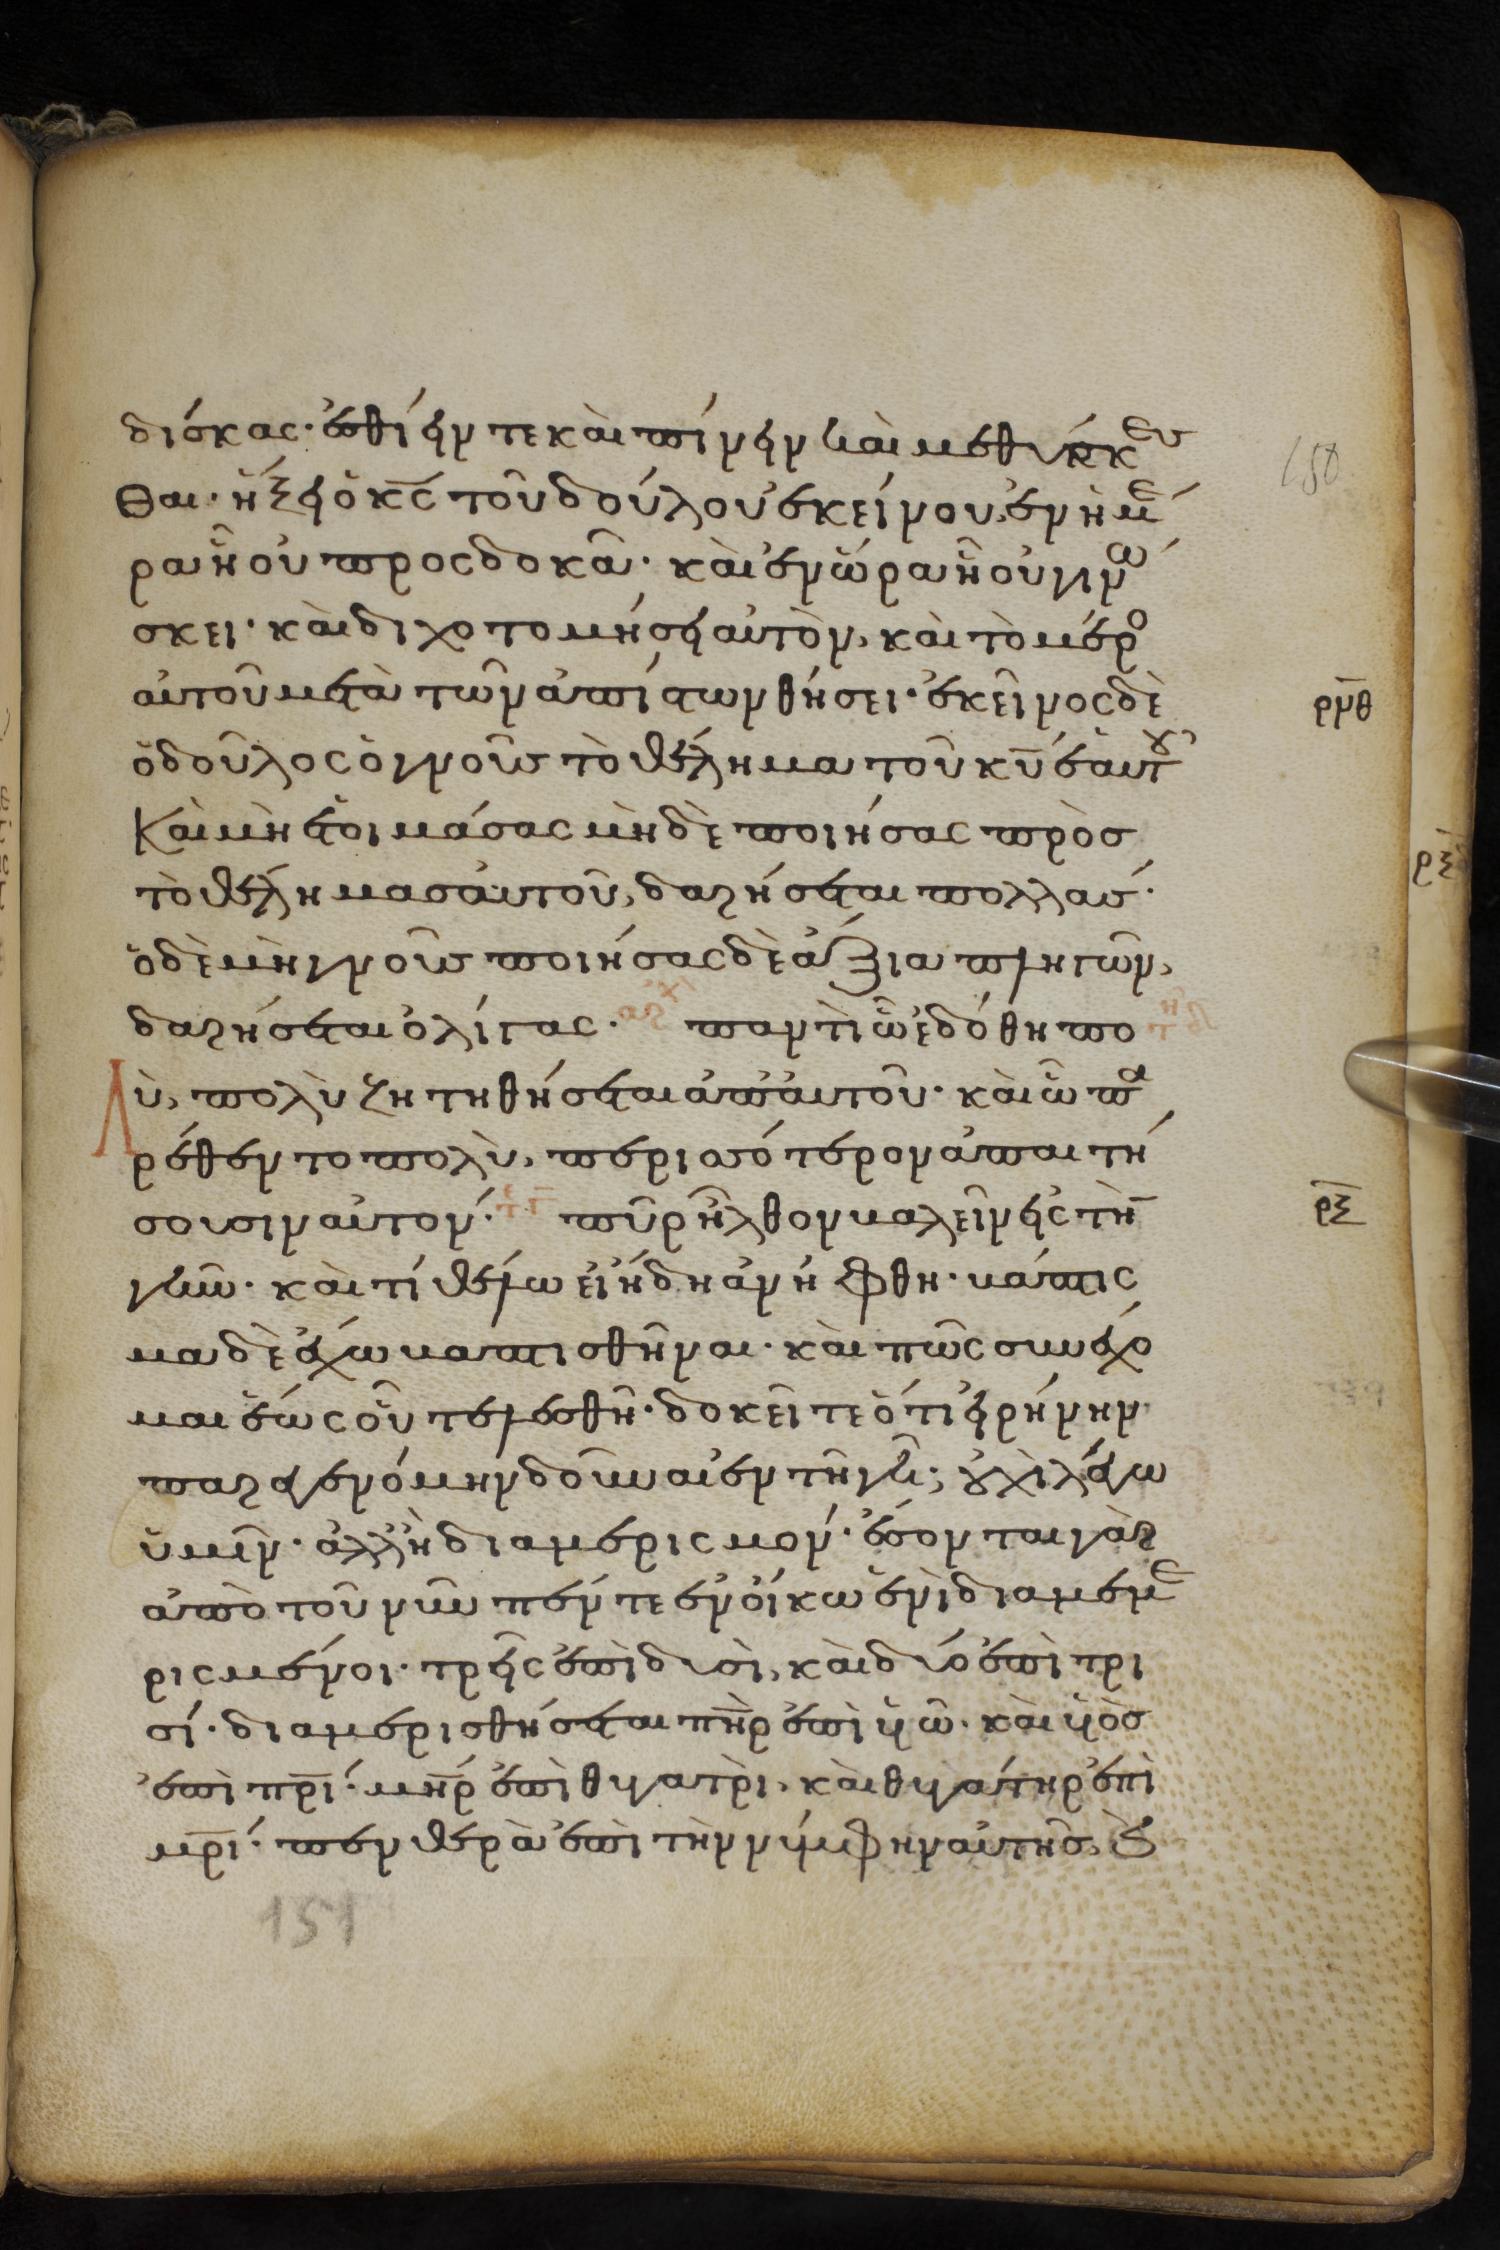 δίσκας· ἐσθίειν τε καὶ πίνειν καὶ μεθύσκεσ
θαι· ἥξει ὁ κ̅ς̅ τοῦ δούλου ἐκείνου, ἐν ἡμέ
ρα ἧ οὐ προσδοκᾶ· καὶ ἐν ὥρα ἧ οὐ γινώ
σκει· καὶ διχοτομήσει αὐτὸν, καὶ τὸ μέρο
αὐτοῦ μετὰ τῶν ἀπίστων θήσει· ἐκεῖνος δὲ
ρνθ
ὁ δοῦλος ὁ γνοὺς τὸ θέλημα τοῦ κ̅υ̅ ἑαυτοῦ
Καὶ μὴ ἑτοιμάσας μὴδὲ ποιήσας πρὸσ
τὸ θέλημα ἑαυτοῦ, δαρήσεται πολλασ·
ὁ δὲ μὴ γνοὺς ποιήσας δὲ ἄξια πληγῶν,
δαρήσεται ὀλίγας· αρχ παντὶ ὧ ἐδόθη πο
Λὺ, πολὺ ζητηθήσεται ἀπ' αὐτοῦ· καὶ ὧ πα
ρέθεντο πολὺ, περισσότερον ἀπαιτή
σουσιν αὐτον· πῦρ ἦλθον βαλεῖν εἰς τὴ̅
ρξ
γῆν· καὶ τί θέλω εἰ ἤδη ἀνήφθη· βάπτισ
μα δὲ ἔχω βαπτισθῆναι· καὶ πῶς συνέχο
μαι ἕως οὗ τελεσθῆ· δοκεῖτε ὅτι εἰρήνην
παρεγενόμην δοῦναι ἐν τῆ γῆ; οὐχὶ λέγω
ὑμῖν· ἀλλ' ἢ διαμερισμον· ἔσονται γὰρ
ἀπὸ τοῦ νῦν πέντε ἐν οἴκω ἑνὶ διαμεμε
ρισμένοι· τρεῖς ἐπὶ δυσὶ, καὶ δύο ἐπὶ τρι
σί· διαμερισθήσεται π̅η̅ρ ἐπὶ υἱῶ· καὶ υἱὸσ
ἐπὶ π̅ρ̅ι̅· μ̅η̅ρ ἐπὶ θυγατρὶ, καὶ θυγάτηρ ἐπὶ
μ̅ρ̅ι̅· πενθερὰ ἐπὶ τὴν νύμφην αὐτῆσ, καὶ
151